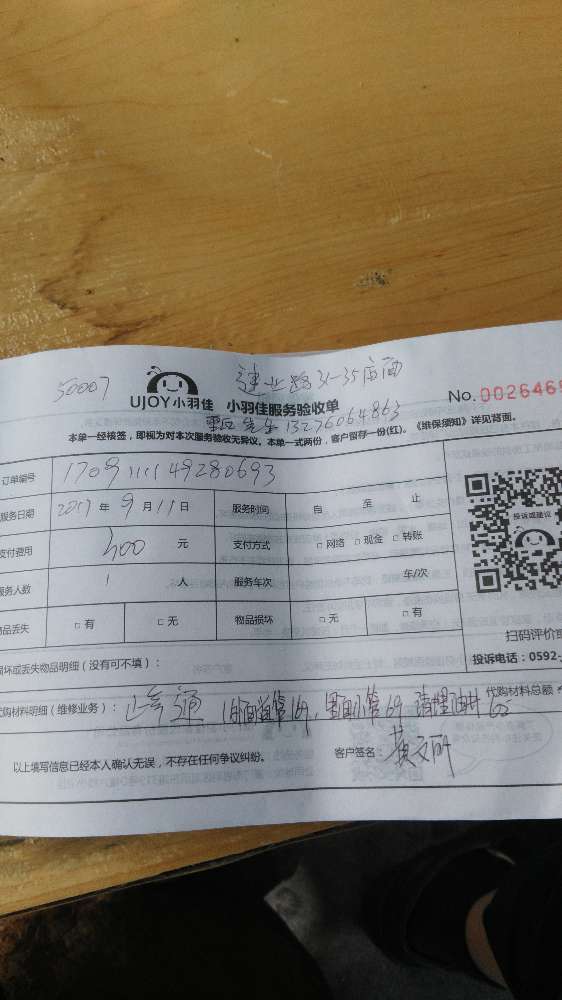 50007
建业路31-35店面
UJOY小羽佳 小羽佳服务验收单 No. 0026469
先生 13276064863
本单一经核签，即视为对本次服务验收无异议。本单一式两份，客户留存一份(红)。《维保须知》详见背面。
订单编号 1709111149280693
服务日期 2017年9月11日 服务时间 自 至 止
投诉或建议
支付费用 300 元 支付方式 □网络 □现金 □转账
服务人数 1 人 服务车次 车/次
物品丢失 □有 □无 物品损坏 □无 □有
扫码评价或
损坏或丢失物品明细（没有可不填）： 投诉电话：0592-
代购材料明细（维修业务）： 疏通 (外面道管169，里面小管69 清理油井65 代购材料总额
以上填写信息已经本人确认无误，不存在任何争议纠纷。 客户签名：黄